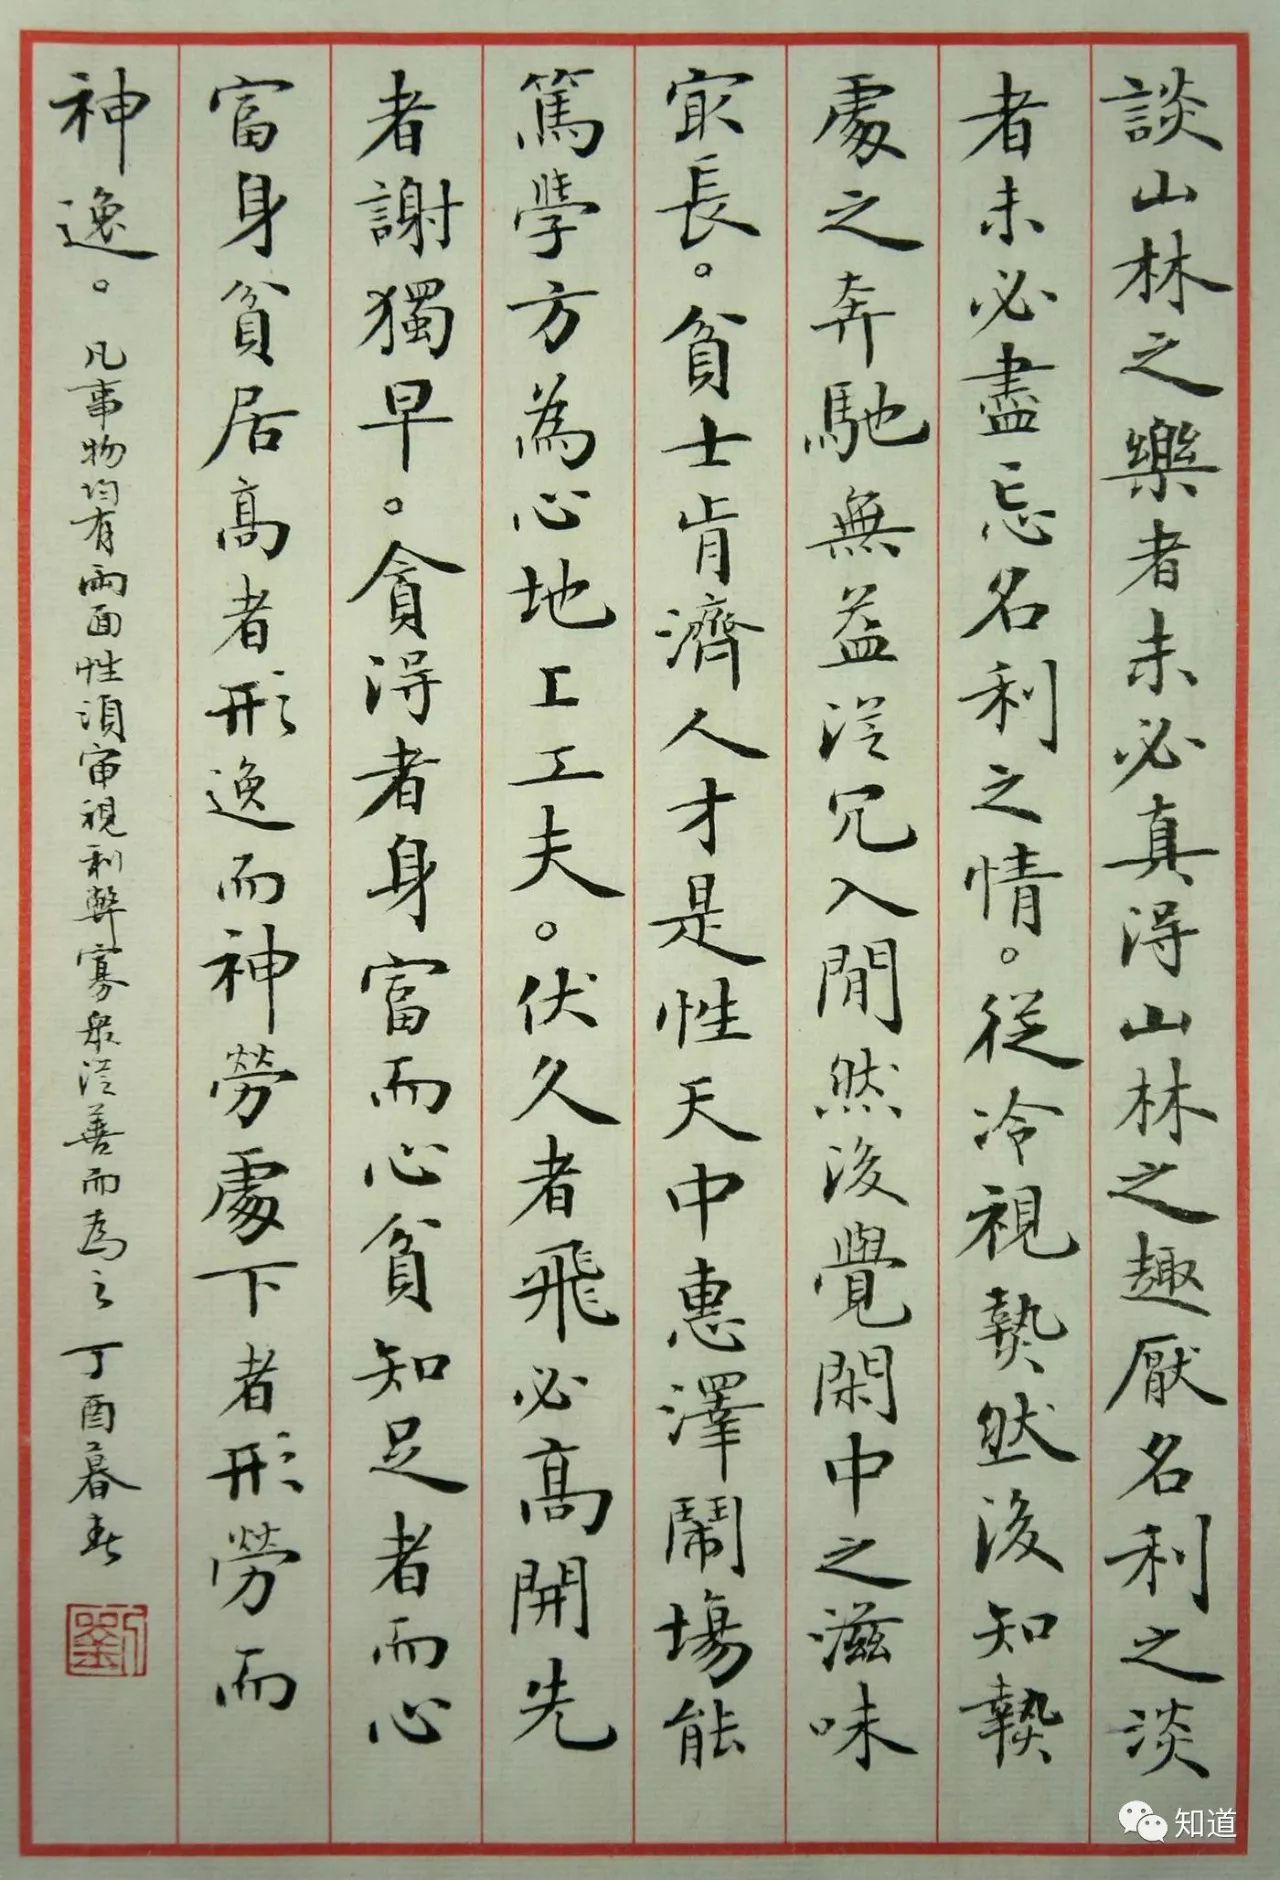 談山林之樂者未必真得山林之趣厭名利之淡
者未必盡忘名利之情。從冷視熱然後知熱
處之奔馳無益從冗入閒然後覺閑中之滋味
㝡長。貧士肯濟人才是性天中惠澤鬧場能
篤學方為心地工工夫。伏久者飛必高開先
者謝獨早。貪得者身富而心貧知足者而心
富身貧居高者形逸而神勞處下者形勞而
神逸。凡事物均有兩面性須審視利弊寡衆從善而為之 丁酉暮春
劉
知道